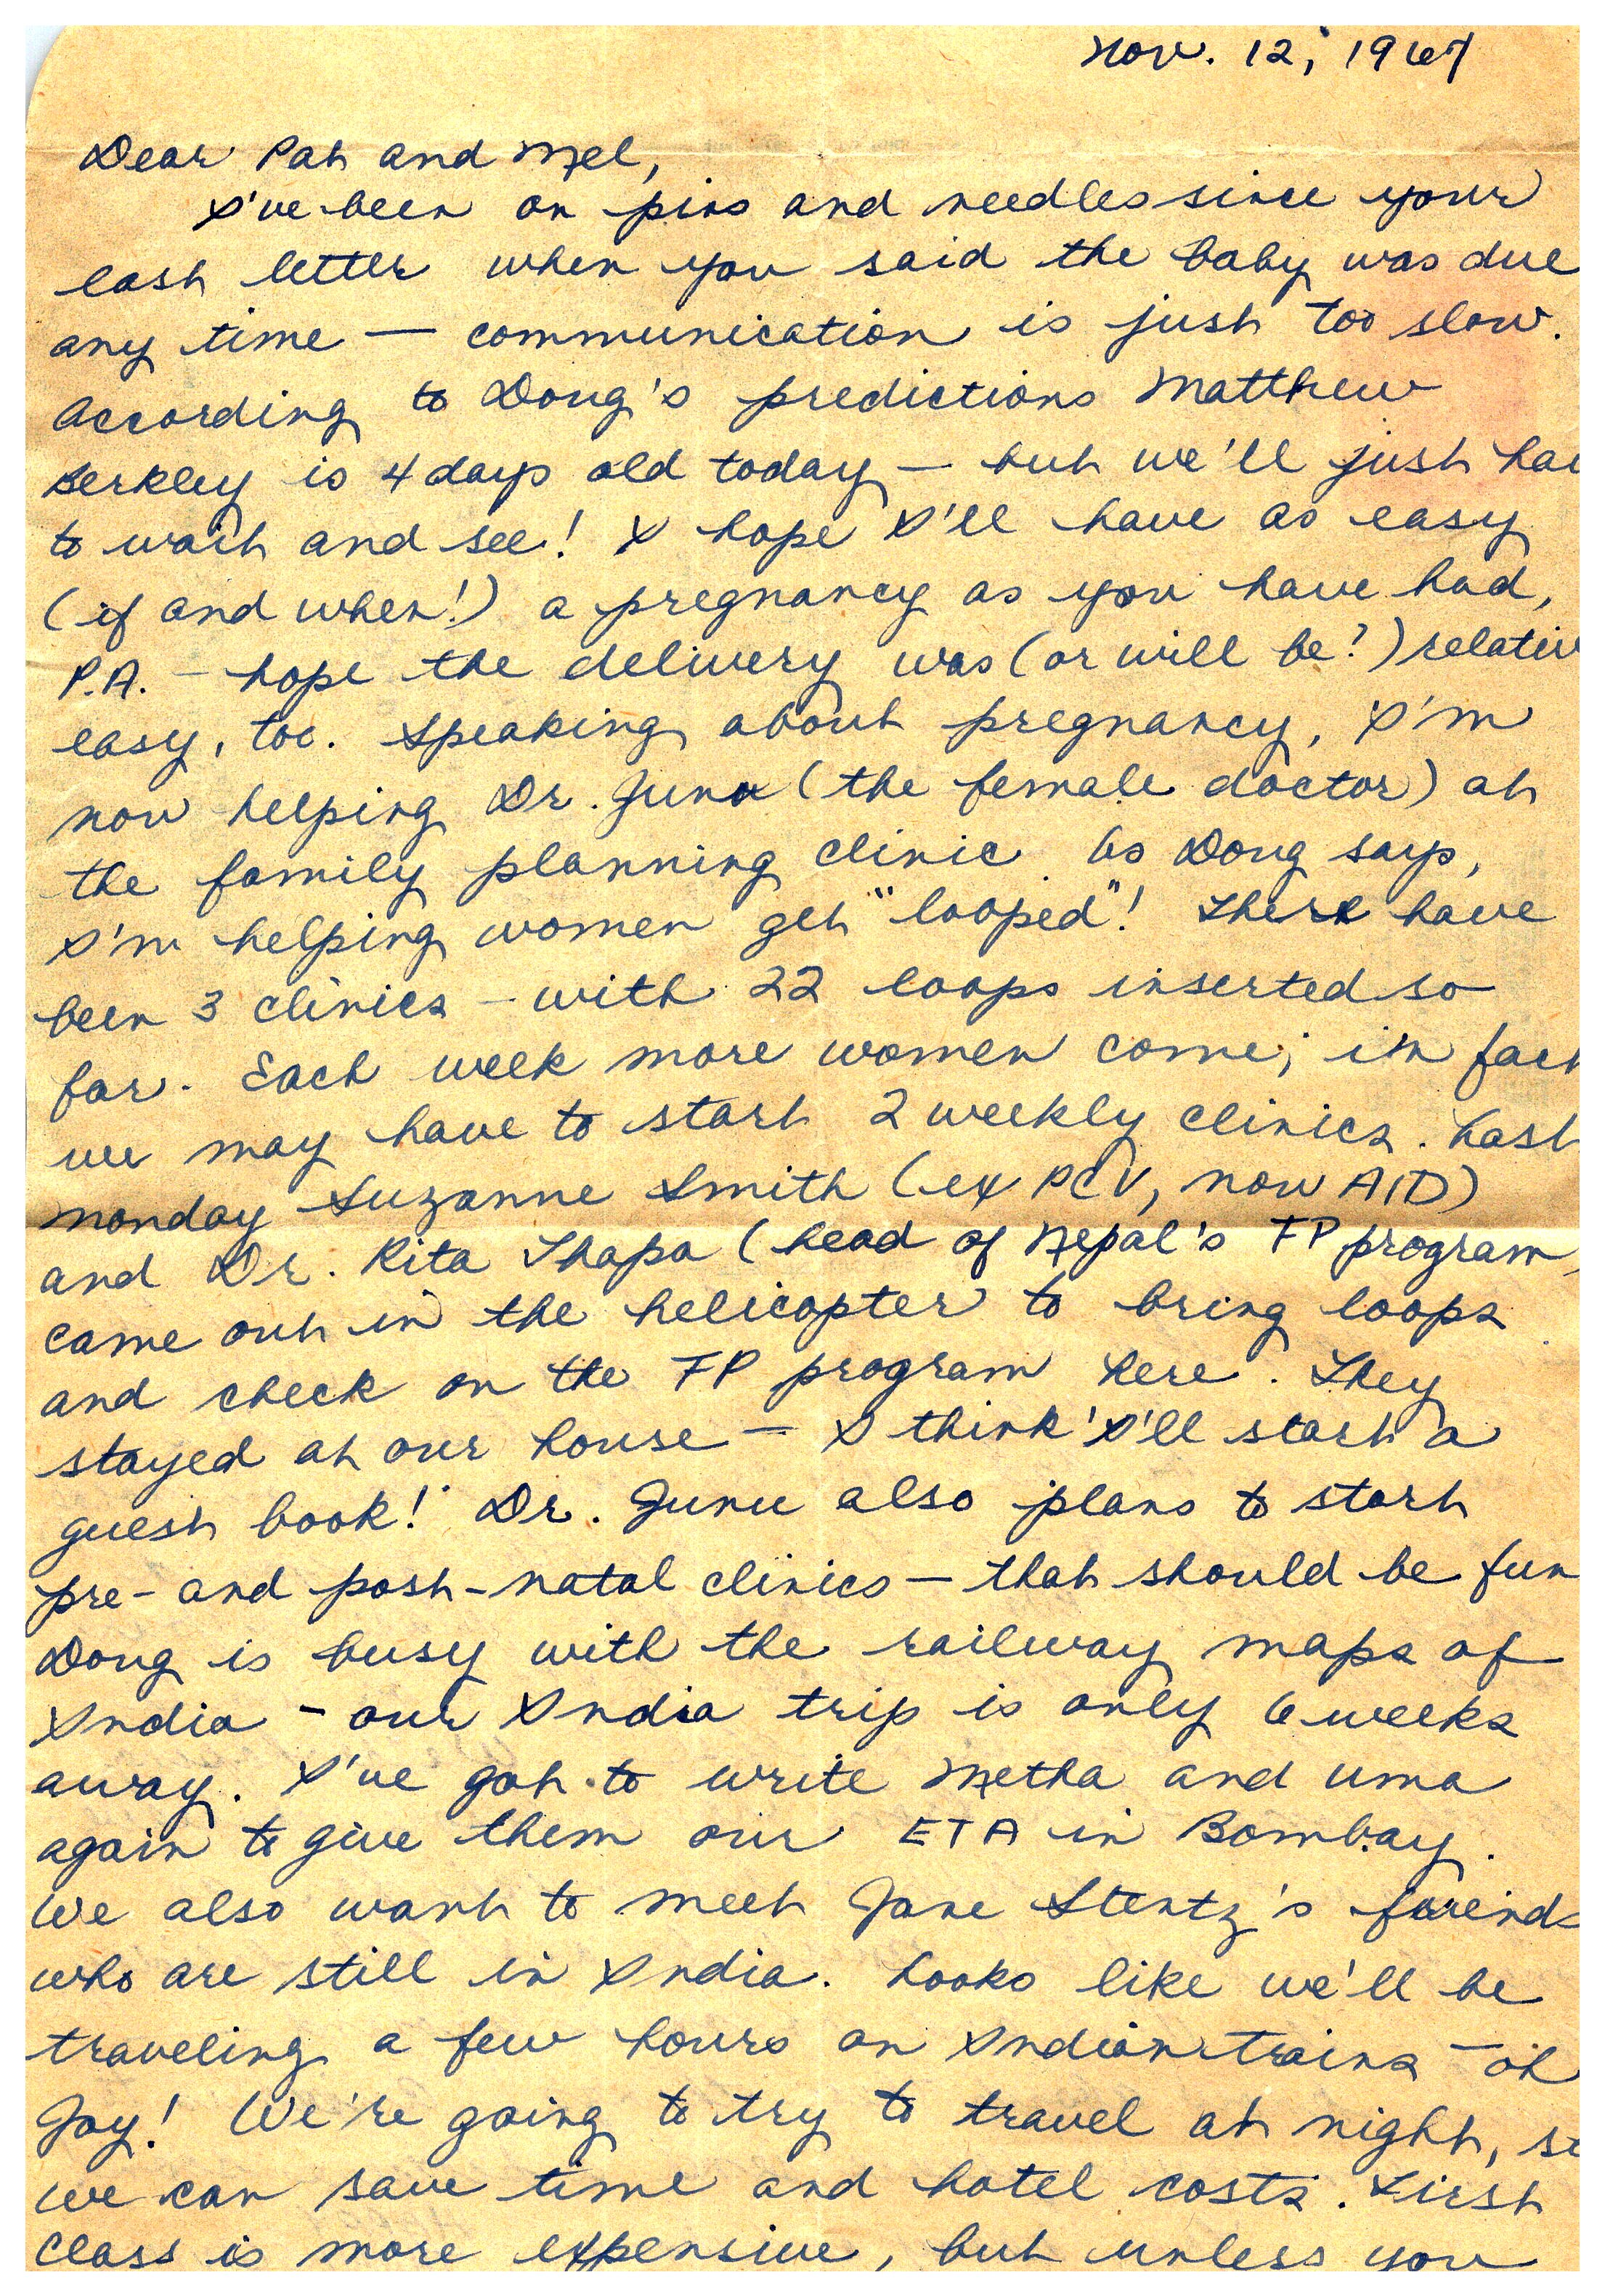 Nov. 12, 1967
Dear Pat and Mel,
I've been on pins and needles since your
last letter when you said the baby was due
any time — communication is just too slow.
According to Doug's predictions Matthew
Berkley is 4 days old today — but we'll just hav
to wait and see! I hope I'll have as easy
(if and when!) a pregnancy as you have had,
P.A. — hope the delivery was (or will be?) relativ
easy, too. Speaking about pregnancy, I'm
now helping Dr. Junu (the female doctor) at
the family planning clinic As Doug says,
I'm helping women get "looped"! There have
been 3 clinics — with 22 loops inserted so
far. Each week more women come; in fact
we may have to start 2 weekly clinics. Last
Monday Suzanne Smith (ex PCV, now AID)
and Dr. Rita Thapa (head of Nepal's FP program)
came out in the helicopter to bring loops
and check on the FP program here. They
stayed at our house — I think I'll start a
guest book! Dr. Junu also plans to start
pre- and post-natal clinics — that should be fun
Doug is busy with the railway maps of
India — our India trip is only 6 weeks
away. I've got to write Metha and Uma
again to give them our ETA in Bombay.
We also want to meet Jane Stentz's freinds
who are still in India. Looks like we'll be
traveling a few hours on Indian trains — oh
Joy! We're going to try to travel at night, so
we can save time and hotel costs. First
Class is more expensive, but unless you